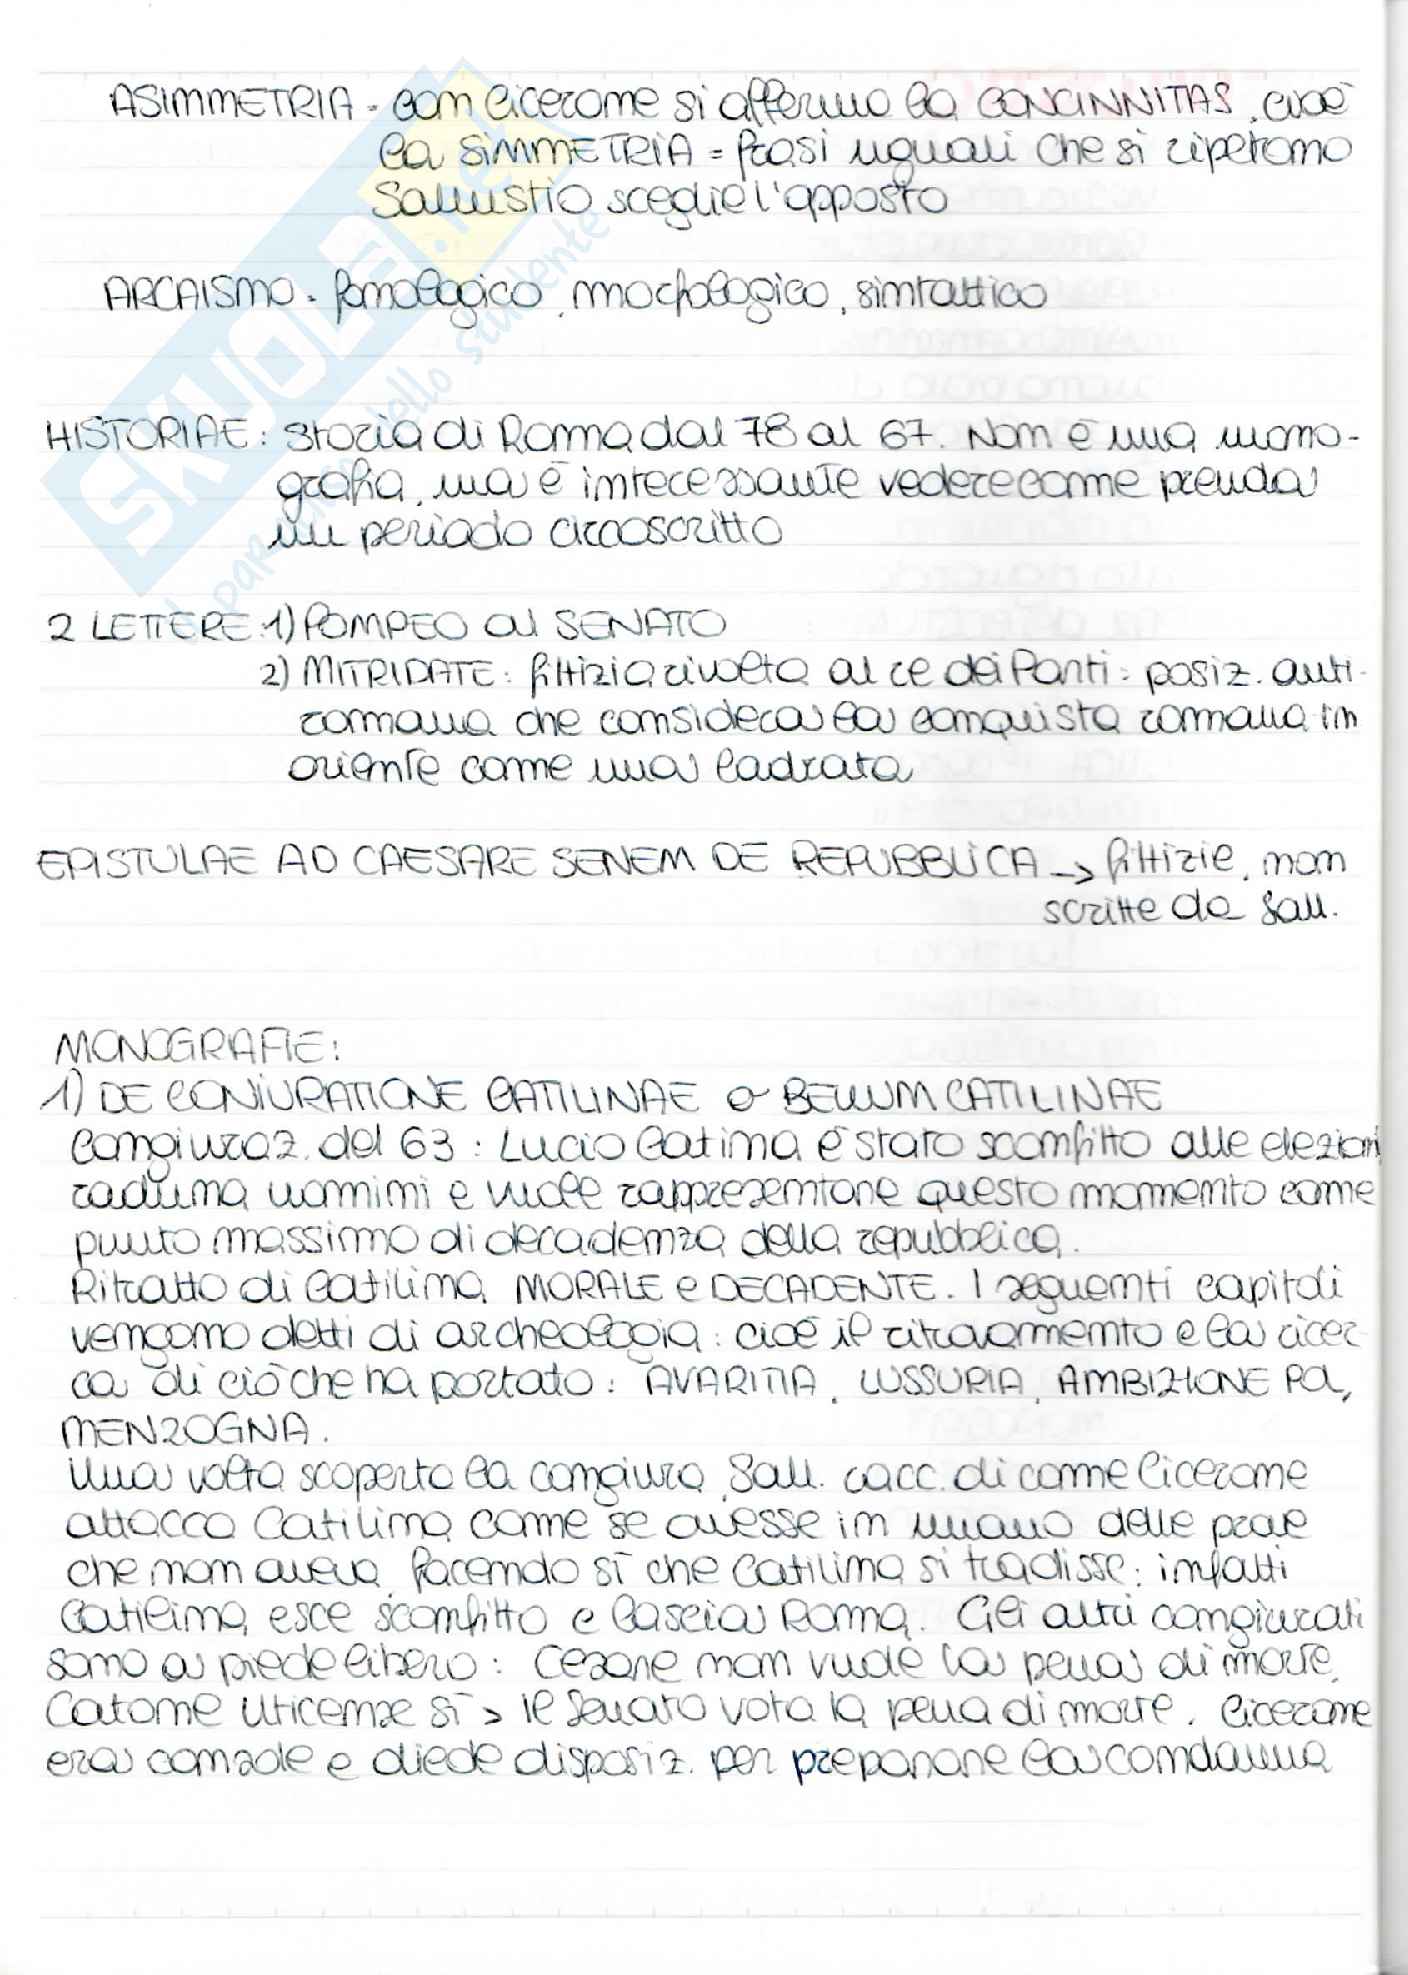 ASIMMETRIA = con Cicerone si affermo la CONCINNITAS, cioè
la SIMMETRIA = frasi uguali che si ripetono
Sallustio sceglie l'opposto
ARCAISMO = fonologico, morfologico, sintattico
HISTORIAE: storia di Roma dal 78 al 67. Non è una mono-
grafia, ma è interessante vedere come prenda
un periodo circoscritto
2 LETTERE: 1) POMPEO al SENATO
2) MITRIDATE: fittizia rivolta al re dei Parti = posiz. anti-
romana che considera la conquista romana in
oriente come una ladrata
EPISTULAE AD CAESARE SENEM DE REPUBBLICA -> fittizie, non
scritte da Sall.
MONOGRAFIE:
1) DE CONIURATIONE CATILINAE o BELLUM CATILINAE
Congiuraz. del 63: Lucio Catina è stato sconfitto alle elezioni
raduna uomini e vuole rappresentare questo momento come
punto massimo di decadenza della repubblica.
Ritratto di Catilina MORALE e DECADENTE. I seguenti capitoli
vengono detti di archeologia: cioè il ritrovamento e la ricer-
ca di ciò che ha portato: AVARITIA, LUSSURIA, AMBIZIONE POL,
MENZOGNA.
Una volta scoperta la congiura, Sall. racc. di come Cicerone
attacca Catilina come se avesse in mano delle prove
che non aveva, facendo sì che Catilina si tradisse: infatti
Catilina esce sconfitto e lascia Roma. Gli altri congiurati
sono a piede libero: Cesare non vuole la pena di morte,
Catone Uticense sì > il Senato vota la pena di morte. Cicerone
era console e diede disposiz. per preparare la condanna
SKUOLA.net
il paradiso dello studente